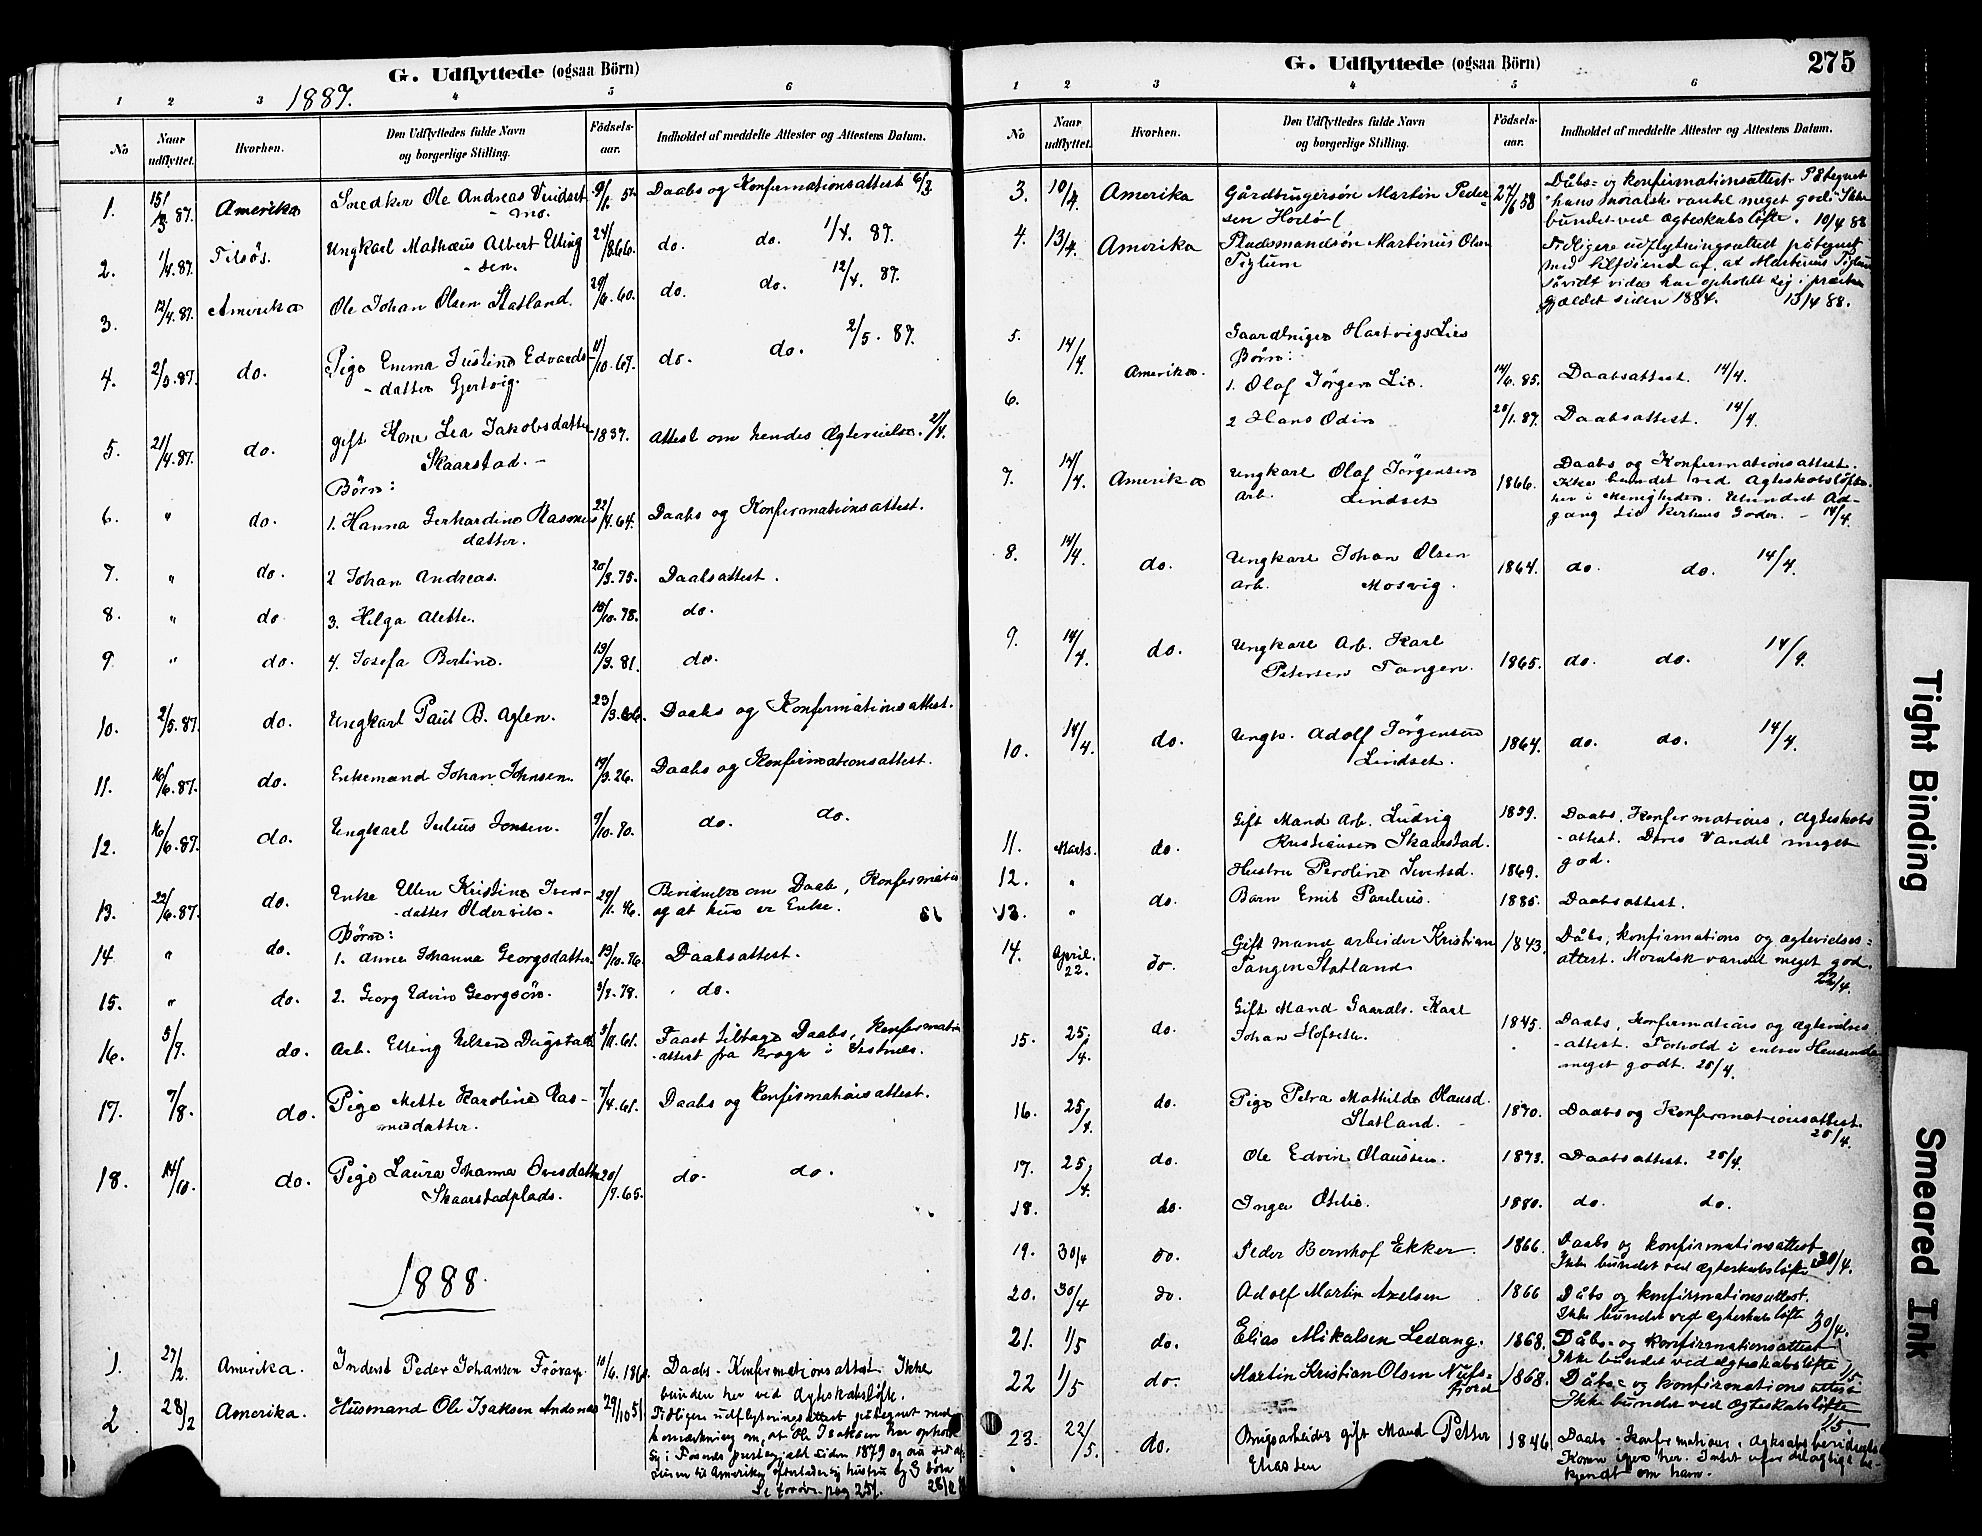 G. Udflyttede (ogsaa Börn)
1887.
1 2 3 4 5 6
No
Naar udflyttet.
Hvorhen.
Den Udflyttedes fulde Navn
og borgerlige Stilling.
Födsels-
aar.
Indholdet af meddelte Attester og Attestens Datum.
1. 15/3 87. Amerika Snedker Ole Andreas 9/6 Daabs og Konfirmationsattest 6/3
2. 1/4.87. Ungkarl Mathæus Albert Elling 24/8 66. do. do. 1/4. 87.
- sen.
3. 12/4.87. Amerika Ole Johan Olsen Statland. 29/6. 60. do. do. 12/4. 87.
4. 2/5.87. do. Pige Emma Justine Edvards- 11/10.67. do. do. 2/5. 87.
- datter Gjertvig. -
5. 21/4.87. do. gift Kone Lea Jakobsdatter 1837. Attest om hendes Ægtevielse. 21/4.
Skaarstad. -
Börn:
6. " do. 1. Hanna Gerhardine Rasmus 22/4.64. Daabs og Konfirmationsattest.
datter.
7. " do. 2 Johan Andreas. 20/3.75. Daabsattest.
8. " do 3. Helga Alette. 15/10.78. do.
9. " do. 4. Josefa Bertine. 19/3.81. do.
10. 2/5.87. do. Ungkarl Paul B. Aglen. 23/3.66. Daabs og Konfirmationsattest.
11. 16/6.87. do. Enkemand Johan Johnsen. 19/3.26. Daabs og Konfirmationsattest.
12. 16/6.87. do. Ungkarl Julius Jonsen. 9/10.70. do. do.
13. 22/6.87. do. Enke Ellen Kristine Ivers- 29/1.46. Bevidnelse om Daab, Konfirmation
- datter Oldervik. og at hun er Enke.
Börn:
14 " do. 1. Anna Johanna Georgsdatter. 19/10.76. Daabsattest.
15. " do. 2. Georg Edvin Georgsön. 78. do.
16. 5/7. do. Arb. Elling Nelsen Dugstad 61. Faaet tiltagt Daabs, Konfirmation
- attest fra
17. 7/8. do. Pige Mette Karoline Ras- 7/4.61. Daabs og Konfirmationsattest.
musdatter.
18. 14/10. do. Pige Laura Johanna 20/7.65. do. do.
Skaarstadplads.
1888.
1. 27/2. Amerika. Inderst Peder Johansen 10/6. Daabs - Konfirmationsattest Ikke
bunden her ved Ægteskabslöfte.
2 28/2 Amerika. Husmand Ole Isaksen Andsnes 29/10 51 Tidligere udflytningsattest påtegnet med
bemærkning om, at Ole Isaksen har opholdt
sig i Fosnes prestegjeld siden 1879 og
til Amerika efterlader sig hustru og börn
pag 251. 28/2
G. Udflyttede (ogsaa Börn)
275
1 2 3 4 5 6
No
Naar udflyttet.
Hvorhen.
Den Udflyttedes fulde Navn
og borgerlige Stilling.
Födsels-
aar.
Indholdet af meddelte Attester og Attestens Datum.
3. 10/4. Amerika Gårdbrugersön Martin Peder- 27/6 58 Dåbs- og konfirmationsattest. Påtegnet
sen "hans moralske vandel meget god." Ikke
bundet ved Ægteskabslöfte. 10/4 88
4. 13/4. Amerika Pladsmandsön Martinus Olsen Tidligere udflytningsattest påtegnet
med tilföiende af, at Martinus
såvidt vides har opholdt sig i præste-
gjældet siden 1884. 13/4 88.
5. 14/4 Amerika. Gaardbruger Hartvig Lies
Börn:
1. Olaf Jörgen Lie 14/6. 85. Daabsattest. 14/4.
6. 2 Hans Odin 87. Daabsattest. 14/4.
7. 14/4. Amerika Ungkarl Olaf Jörgensen 1866. Daabs og Konfirmationsattest.
arb. Lindset Ikke bundet ved Ægteskabslöfte
her i Menigheden. Uhindret Ad-
gang til Kirkens Goder. - 14/4.
8. 14/4. do. Ungkarl Johan Olsen 1864. do. do. 14/4.
arb. Mosvig.
9. 14/4. do. Ungkarl Arb. Karl
Petersen Tangen. 1865. do. do. 14/9.
10. 14/4. do. Ungk. Adolf Jörgensen 1864. do. do. 14/4.
Lindset.
11. Marts. do. Gift Mand Arb. Ludvig 1859. Daabs, Konfirmations, Ægteskabs
Kristiansen Skaarstad. - attest. Deres Vandel meget
12. " Hustru Peroline Ivertsd. 1869. god.
13. " do. Barn Emil Paulius. 1885. Daabsattest.
14. April. 22. do. Gift mand arbeider Kristian 1843. Dåbs, konfirmations og ægtevielses=
Tangen Statland attest. Moralsk vandel meget god.
22/4.
15. 25/4. do. Gift Mand Gaardb. Karl 1845. Daabs, Konfirmations og Ægtevielses
Johan Hofstet. - attest. Forhold i enhver Henseende
meget godt. 25/4.
16. 25/4. do. Pige Petra Mathilde Olausd. 1870. Daabs og Konfirmationsattest.
Statland. - 25/4.
17. 25/4. do. Ole Edvin Olaussen. 1873. Daabsattest. 25/4.
18. do. Inga Otilie 1880. do. do.
19. 30/4 do. Peder Bernhof Ekker. 1866. Daabs og konfirmationsattest
Ikke bundet ved ægteskabslöfte 30/4.
20. 30/4 do. Adolf Martin Axelsen 1866 Dåbs og konfirmationsattest.
Ikke bundet ved ægteskabslöfte 30/4.
21. 1/5 do. Elias Mikalsen Ledang. 1868. Dåbs- og konfirmationsattest
Ikke bundet ved ægteskabslöfte 1/5
22 1/5 do. Martin Kristian Olsen Nufs- 1868. Dåbs- og konfirmationsattest
fjord Ikke bundet ved ægteskabslöfte
1/5
23. 22/5. do. Brugsarbeider gift Mand Petter 1846 Daabs - Konfirmations,
Eliassen Kommer igjen her. Intet ufordelagtigt be-
kjendt om ham.
Tight Binding
Smeared Ink